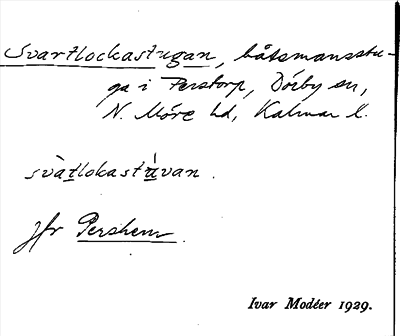 Svartlockastugan, båtsmansstu-
ga i Perstorp, Dörby sn,
N. Möre hd, Kalmar l.
svàtlokastúvan.
jfr Pershem.
Ivar Modéer 1929.